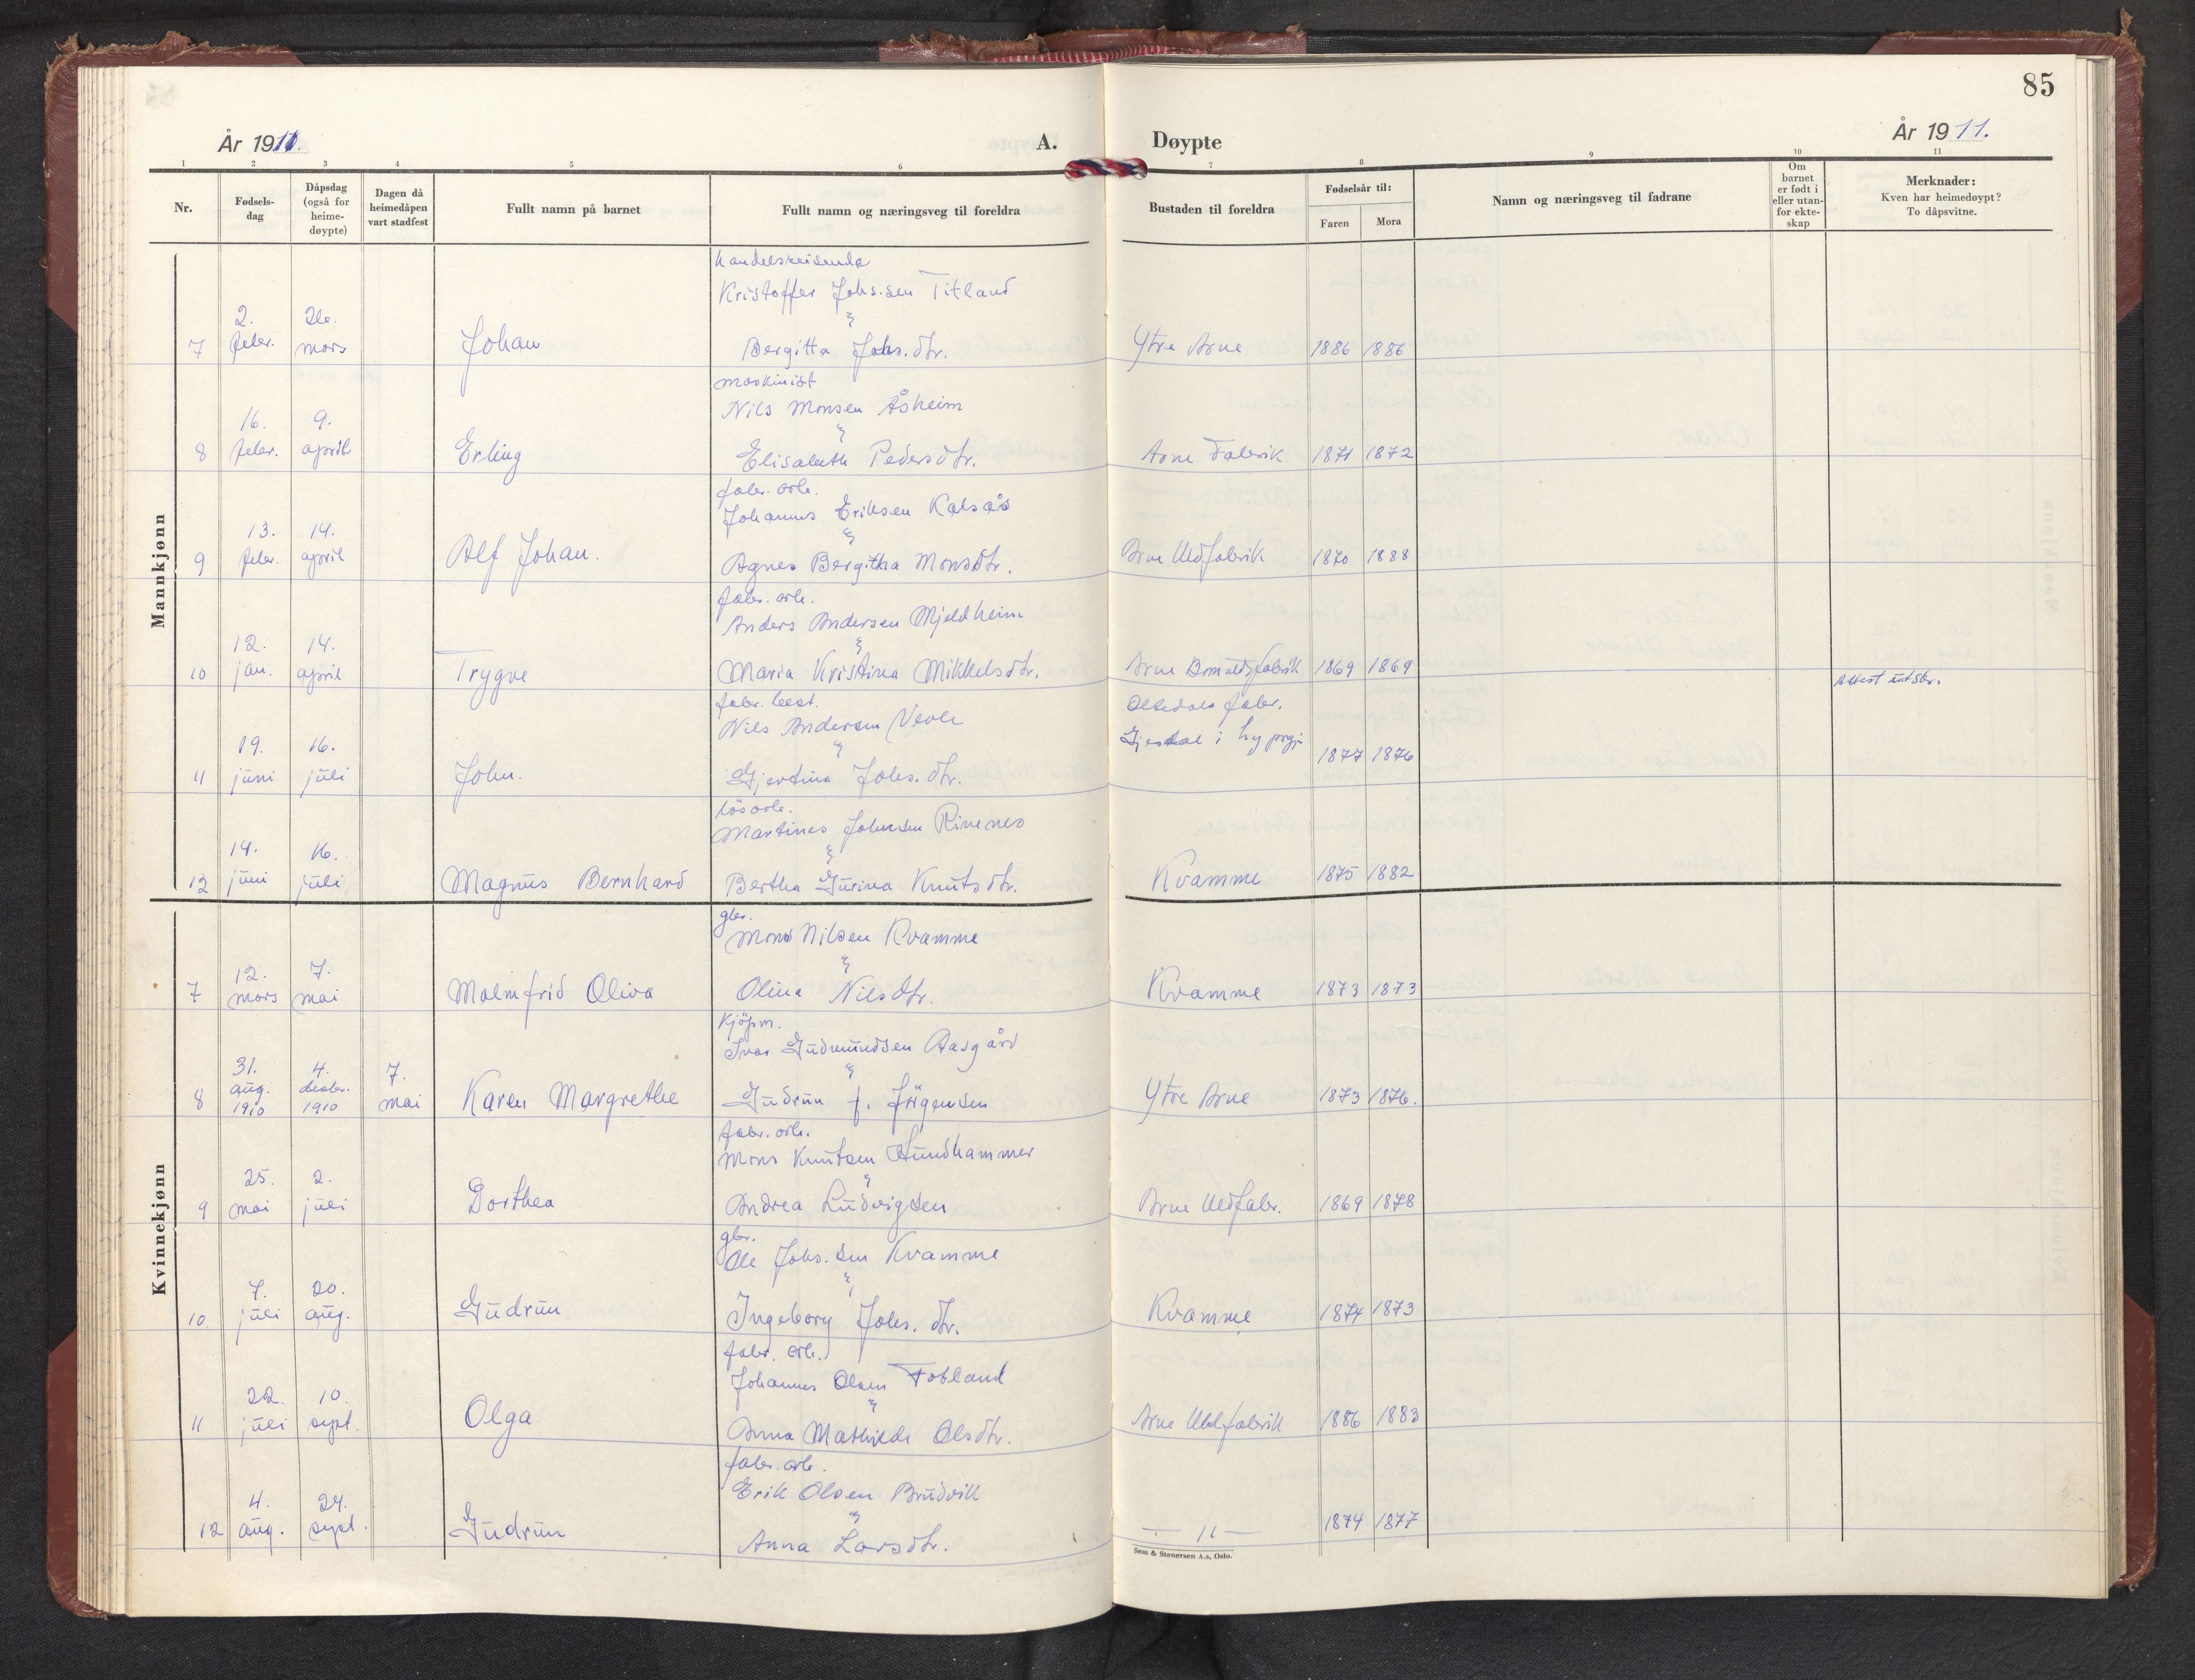 85
År 1911.
A.
Døypte
År 1911.
1 2 3 4 5 6 7 8 9 10 11
Nr.
Fødsels-
dag
Dåpsdag
(også for
heime-
døypte)
Dagen då
heimedåpen
vart stadfest
Fullt namn på barnet
Fullt namn og næringsveg til foreldra
Bustaden til foreldra
Fødselsår til:
Faren Mora
Namn og næringsveg til fadrane
Om
barnet
er født i
eller utan-
for ekte-
skap
Merknader:
Kven har heimedøypt?
To dåpsvitne.
Mankjønn
handelsreisende
Kristoffer Johs.sen Titland
2. 26.
&
7 febr. mars Johan Bergitta Johs. dtr. Ytre Arne 1886 1886
maskinist
Nils Monsen Åsheim
16. 9.
&
8 febr. april Erling Elisabeth Pedersdtr. Arne Fabrik 1871 1872
fabr. arb.
Johannes Eriksen Kalsås
13. 14.
&
9 febr. april Alf Johan. Agnes Bergitha Monsdtr. Arne Uldfabrik 1870 1888
fabr. arb.
Anders Andersen Mjeldheim
12. 14.
&
10 jan. april Trygve Maria Kristina Mikkelsdtr. Arne Bomuldsfabrik 1869 1869
Attest utskr.
fabr. best.
Nils Andersen
Oltedals fabr.
19. 16.
&
Gjesdal i
11 juni juli John. Gjertina Johs. dtr. 1877 1876
løsarb.
Martines Johnsen Rivenes
14. 16.
&
12 juni juli Magnus Bernhard Bertha Gurina Knutsdtr. Kvamme 1875 1882
Kvinnekjønn
gbr.
Mons Nilsen Kvamme
12. 7.
&
7 mars mai Malmfrid Oliva Olina Nilsdtr. Kvamme 1873 1873
kjøpm.
Ivar Gudmundsen Aasgård
31. 4. 7.
&
8 aug. 1910 desbr. 1910 mai Karen Margrethe Gudrun f. Jørgensen Ytre Arne 1873 1876.
fabr. arb.
Mons Knutsen Hundhammer
25. 2.
&
9 mai juli Dorthea Andrea Ludvigsen Arne Uldfabr. 1869 1878
gbr.
Ole Johs.sen Kvamme
7. 20.
&
10. juli aug. Gudrun Ingeborg Johs. dtr. Kvamme 1874 1873
fabr. arb.
Johannes Olsen
22. 10.
&
11 juli sept. Olga Anna Mathilde Olsdtr. Arne Uldfabrik 1886 1883
fabr. arb.
Erik Olsen Brudvik
4. 24.
&
12 aug. sept. Gudrun Anna Larsdtr. — 11 — 1874 1877
Sem & Stenersen A.s, Oslo.